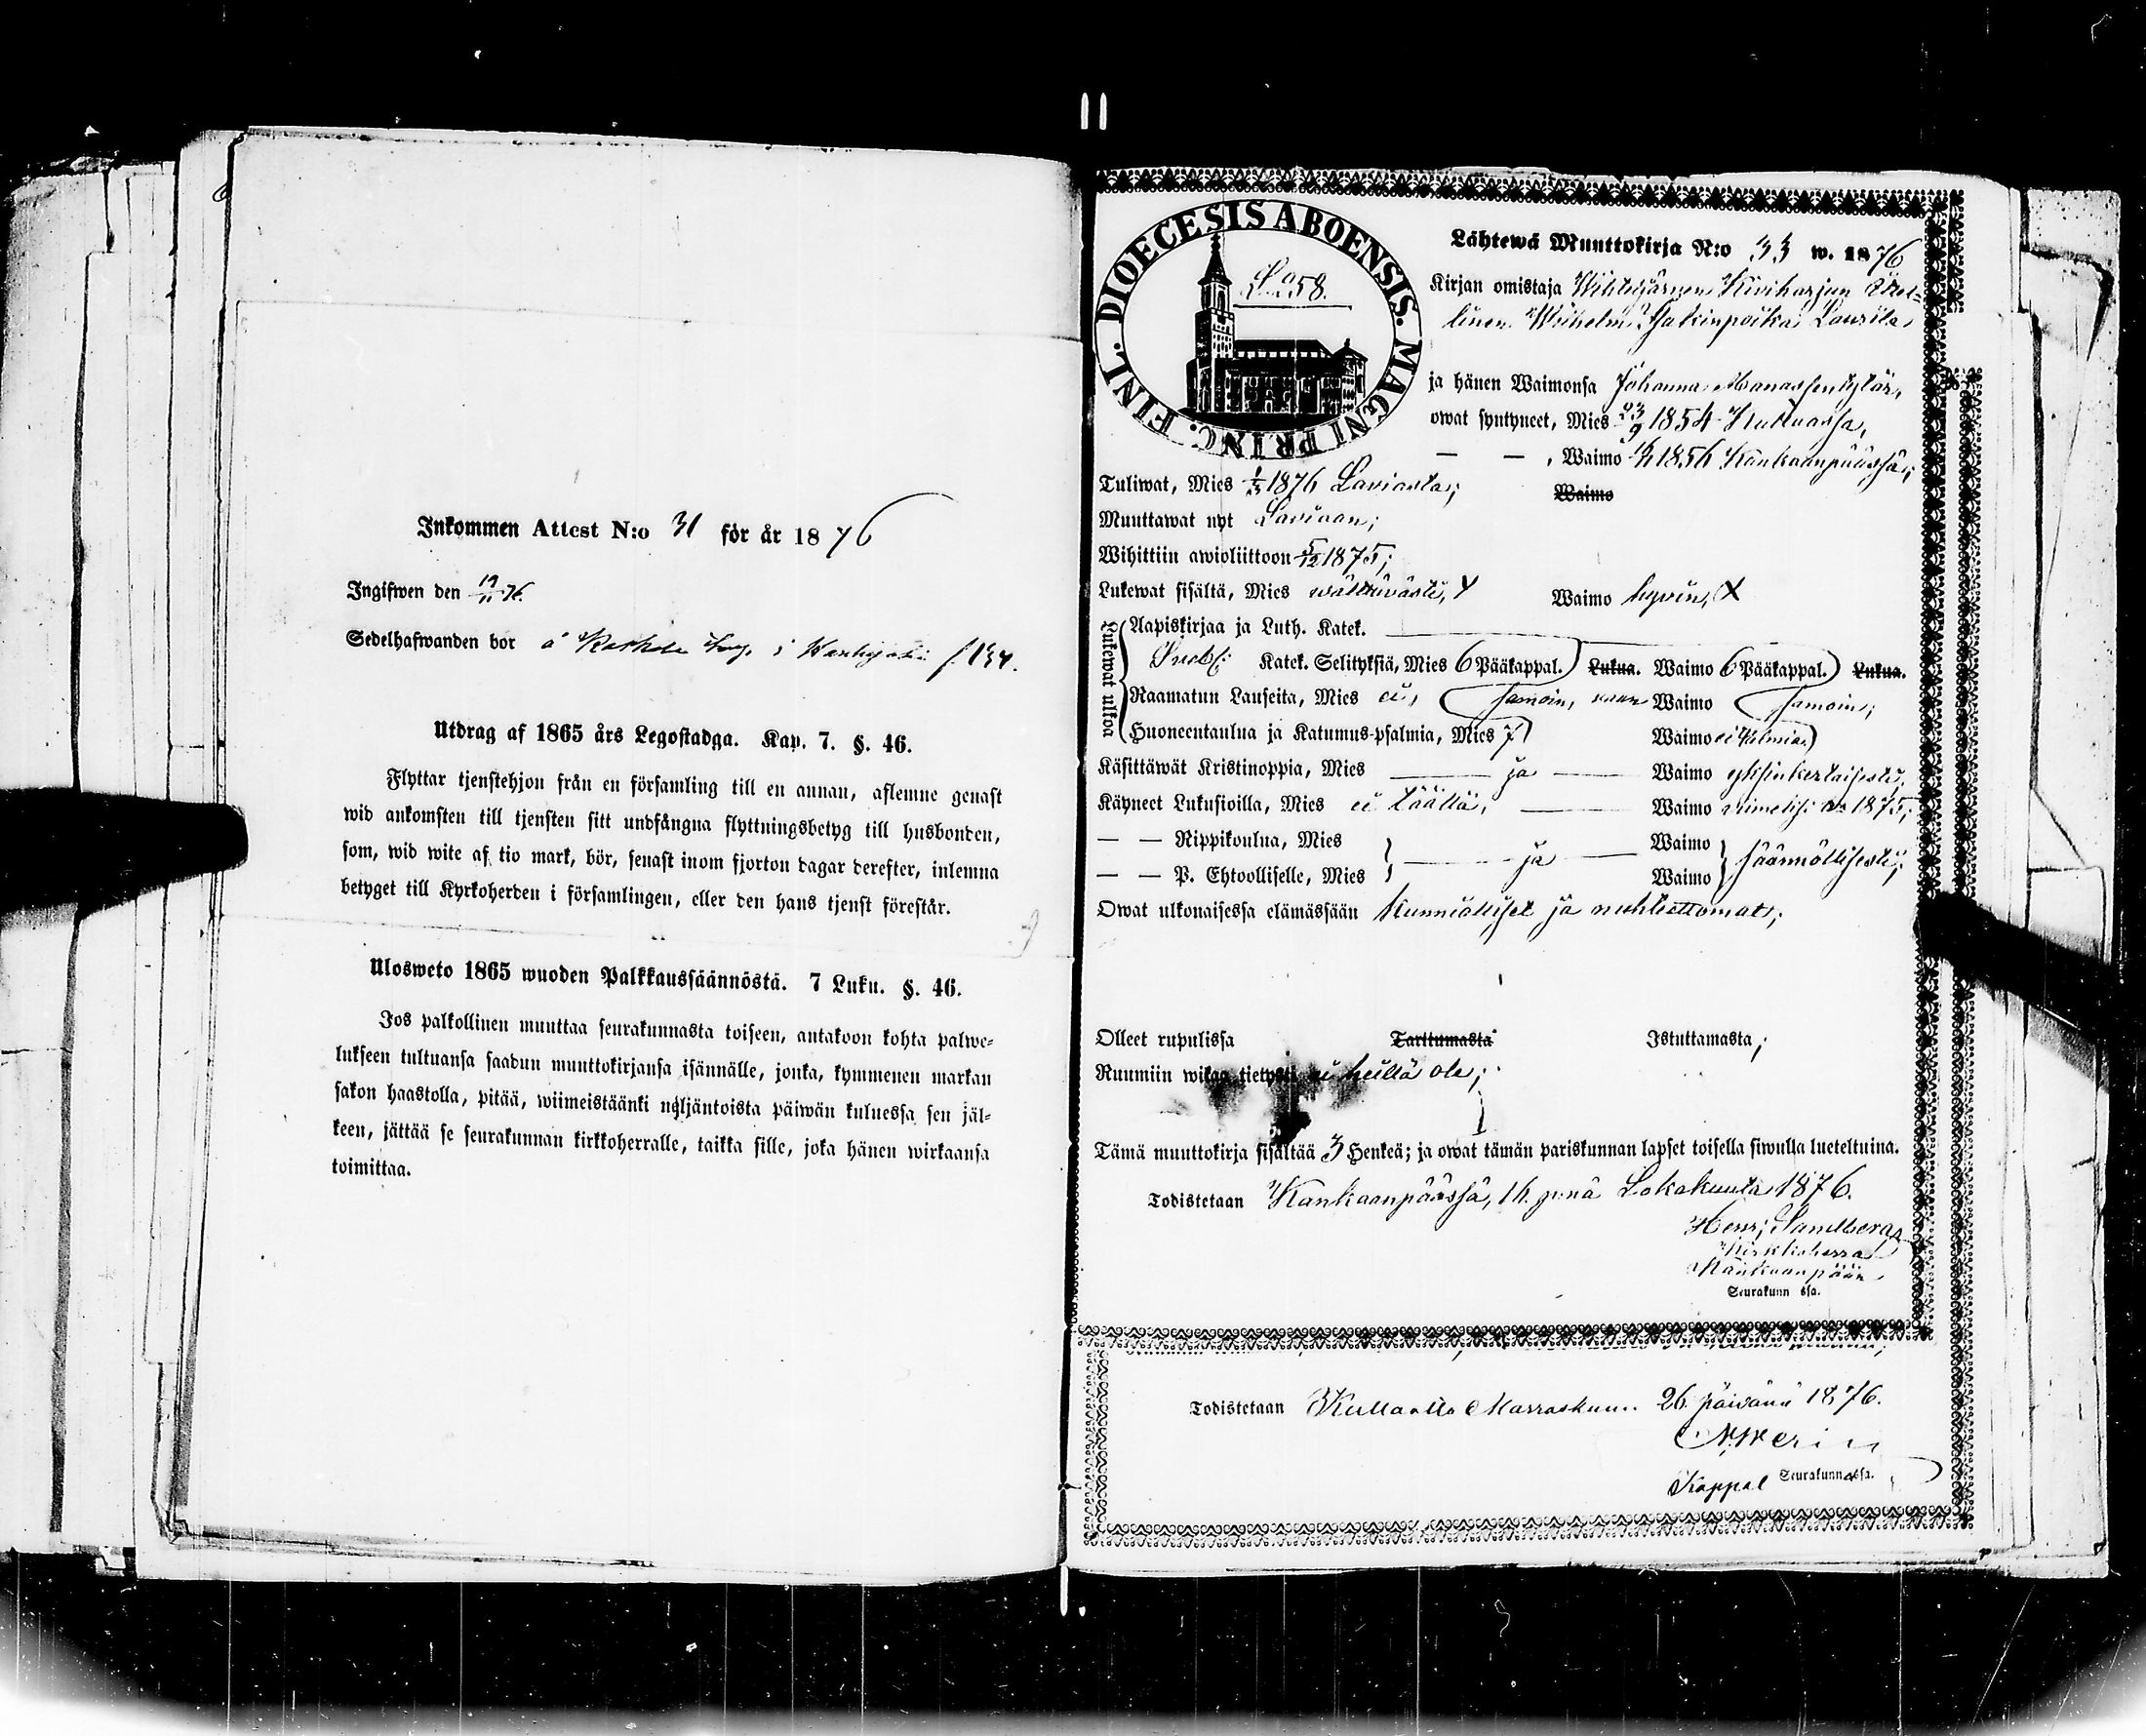 Inkommen Attest N:o 31 för år 1876
Ingifwen den 19/11 76.
Sedelhafwanden bor å i f. 134.
Utdrag af 1865 års Legostadga. Kap. 7. §. 46.
Flyttar tjenstehjon från en församling till en annan, aflemne genast
wid ankomsten till tjensten sitt undfångna flyttningsbetyg till husbonden,
som, wid wite af tio mark, bör, senast inom fjorton dagar derefter, inlemna
betyget till Kyrkoherden i församlingen, eller den hans tjenst förestår.
Ulosweto 1865 wuoden Palkkaussäännöstä. 7 Luku. §. 46.
Jos palkollinen muuttaa seurakunnasta toiseen, antakoon kohta palwe-
lukseen tultuansa saadun muuttokirjansa isännälle, jonka, kymmenen markan
sakon haastolla, pitää, wiimeistäänki neljäntoista päiwän kuluessa sen jäl-
keen, jättää se seurakunnan kirkkoherralle, taikka sille, joka hänen wirkaansa
toimittaa.
DIOECESIS ABOENSIS. MAGNI PRINC. FINL.
58.
Lähtewä Muuttokirja N:o 33 w. 1876
Kirjan omistaja Kiviharjun
linen Wilhelm Laurila
ja hänen Waimonsa Johanna Manassentytär,
owat syntyneet, Mies 23/9 1854 Kulluassa,
— — , Waimo 1856 Kankaanpäässä;
Tuliwat, Mies 1876 Laviasta; Waimo
Muuttawat nyt Laviaan;
Wihittiin awioliittoon 5/12 1875;
Lukewat sisältä, Mies wälttäwästi, Waimo hyvin,
Lukewat ulkoa
Aapiskirjaa ja Luth. Katek.
Katek. Selityksiä, Mies 6 Pääkappal. Lukua. Waimo 6 Pääkappal. Lukua.
Raamatun Lauseita, Mies ei, samoin, Waimo samoin;
Huoneentaulua ja Katumus-psalmia, Mies 7 Waimo
Käsittäwät Kristinoppia, Mies — ja — Waimo yksinkertaisesti;
Käyneet Lukusioilla, Mies ei täällä, Waimo 1875;
— — Rippikoulua, Mies — ja — Waimo säännöllisesti;
— — P. Ehtoolliselle, Mies Waimo
Owat ulkonaisessa elämässään kunnialliset ja nuhteettomat;
Olleet rupulissa Tarttumasta Istuttamasta;
Ruumiin wikaa tietysti ei heillä ole;
Tämä muuttokirja sisältää 3 Henkeä; ja owat tämän pariskunnan lapset toisella siwulla lueteltuina.
Todistetaan Kankaanpäässä, 16 p:nä Lokakuuta 1876.
Sandberg
Kirkkoherra
Kankaanpään
Seurakunnassa.
Todistetaan Kullaalla Marraskuun 26 päivänä 1876.
Kappal Seurakunnassa.